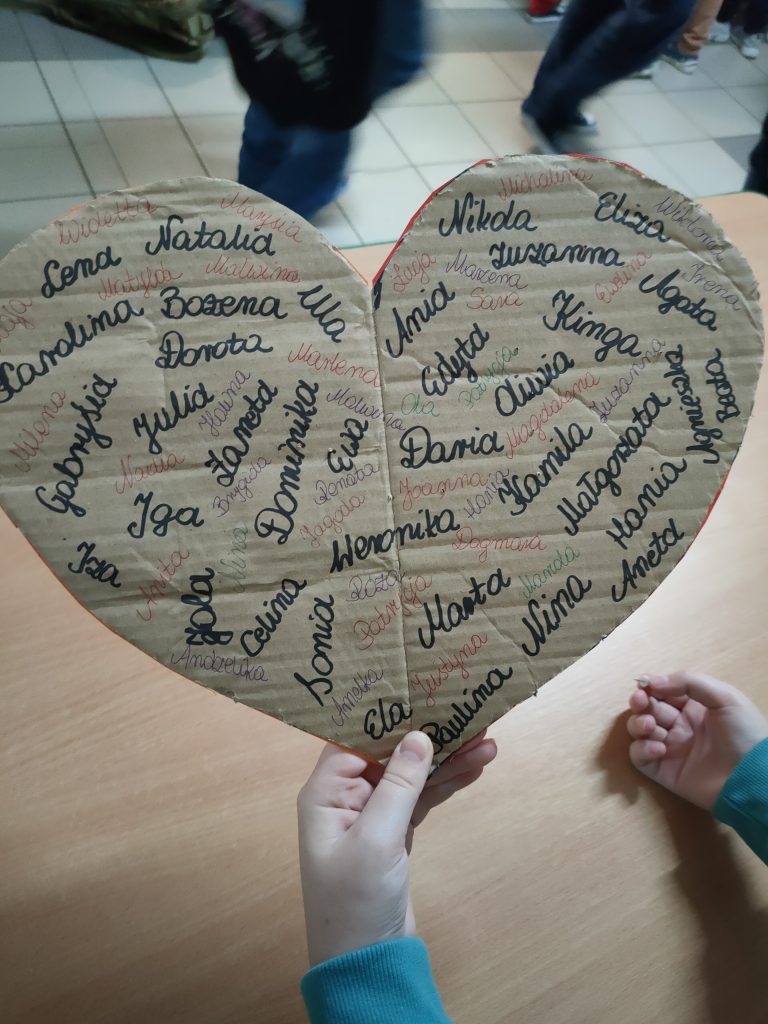 Wioletta
Marysia
Lena
Natalia
Matylda
Malwina
Karolina
Bożena
Ula
Dorota
Marlena
Milena
Gabrysia
Julia
Halina
Żaneta
Malwina
Nadia
Brygida
Dominika
Ewa
Renata
Iga
Jagoda
Iza
Anita
Nina
Weronika
Jola
Celina
Sonia
Róża
Patrycja
Andżelika
Amelka
Ela
Michalina
Nikola
Eliza
Wiktoria
Łucja
Marzena
Zuzanna
Ewelina
Irena
Ania
Sara
Agata
Kinga
Edyta
Ola
Patrycja
Oliwia
Zuzanna
Agnieszka
Beata
Daria
Magdalena
Joanna
Hania
Kamila
Małgorzata
Hania
Dagmara
Wanda
Aneta
Marta
Nina
Justyna
Paulina